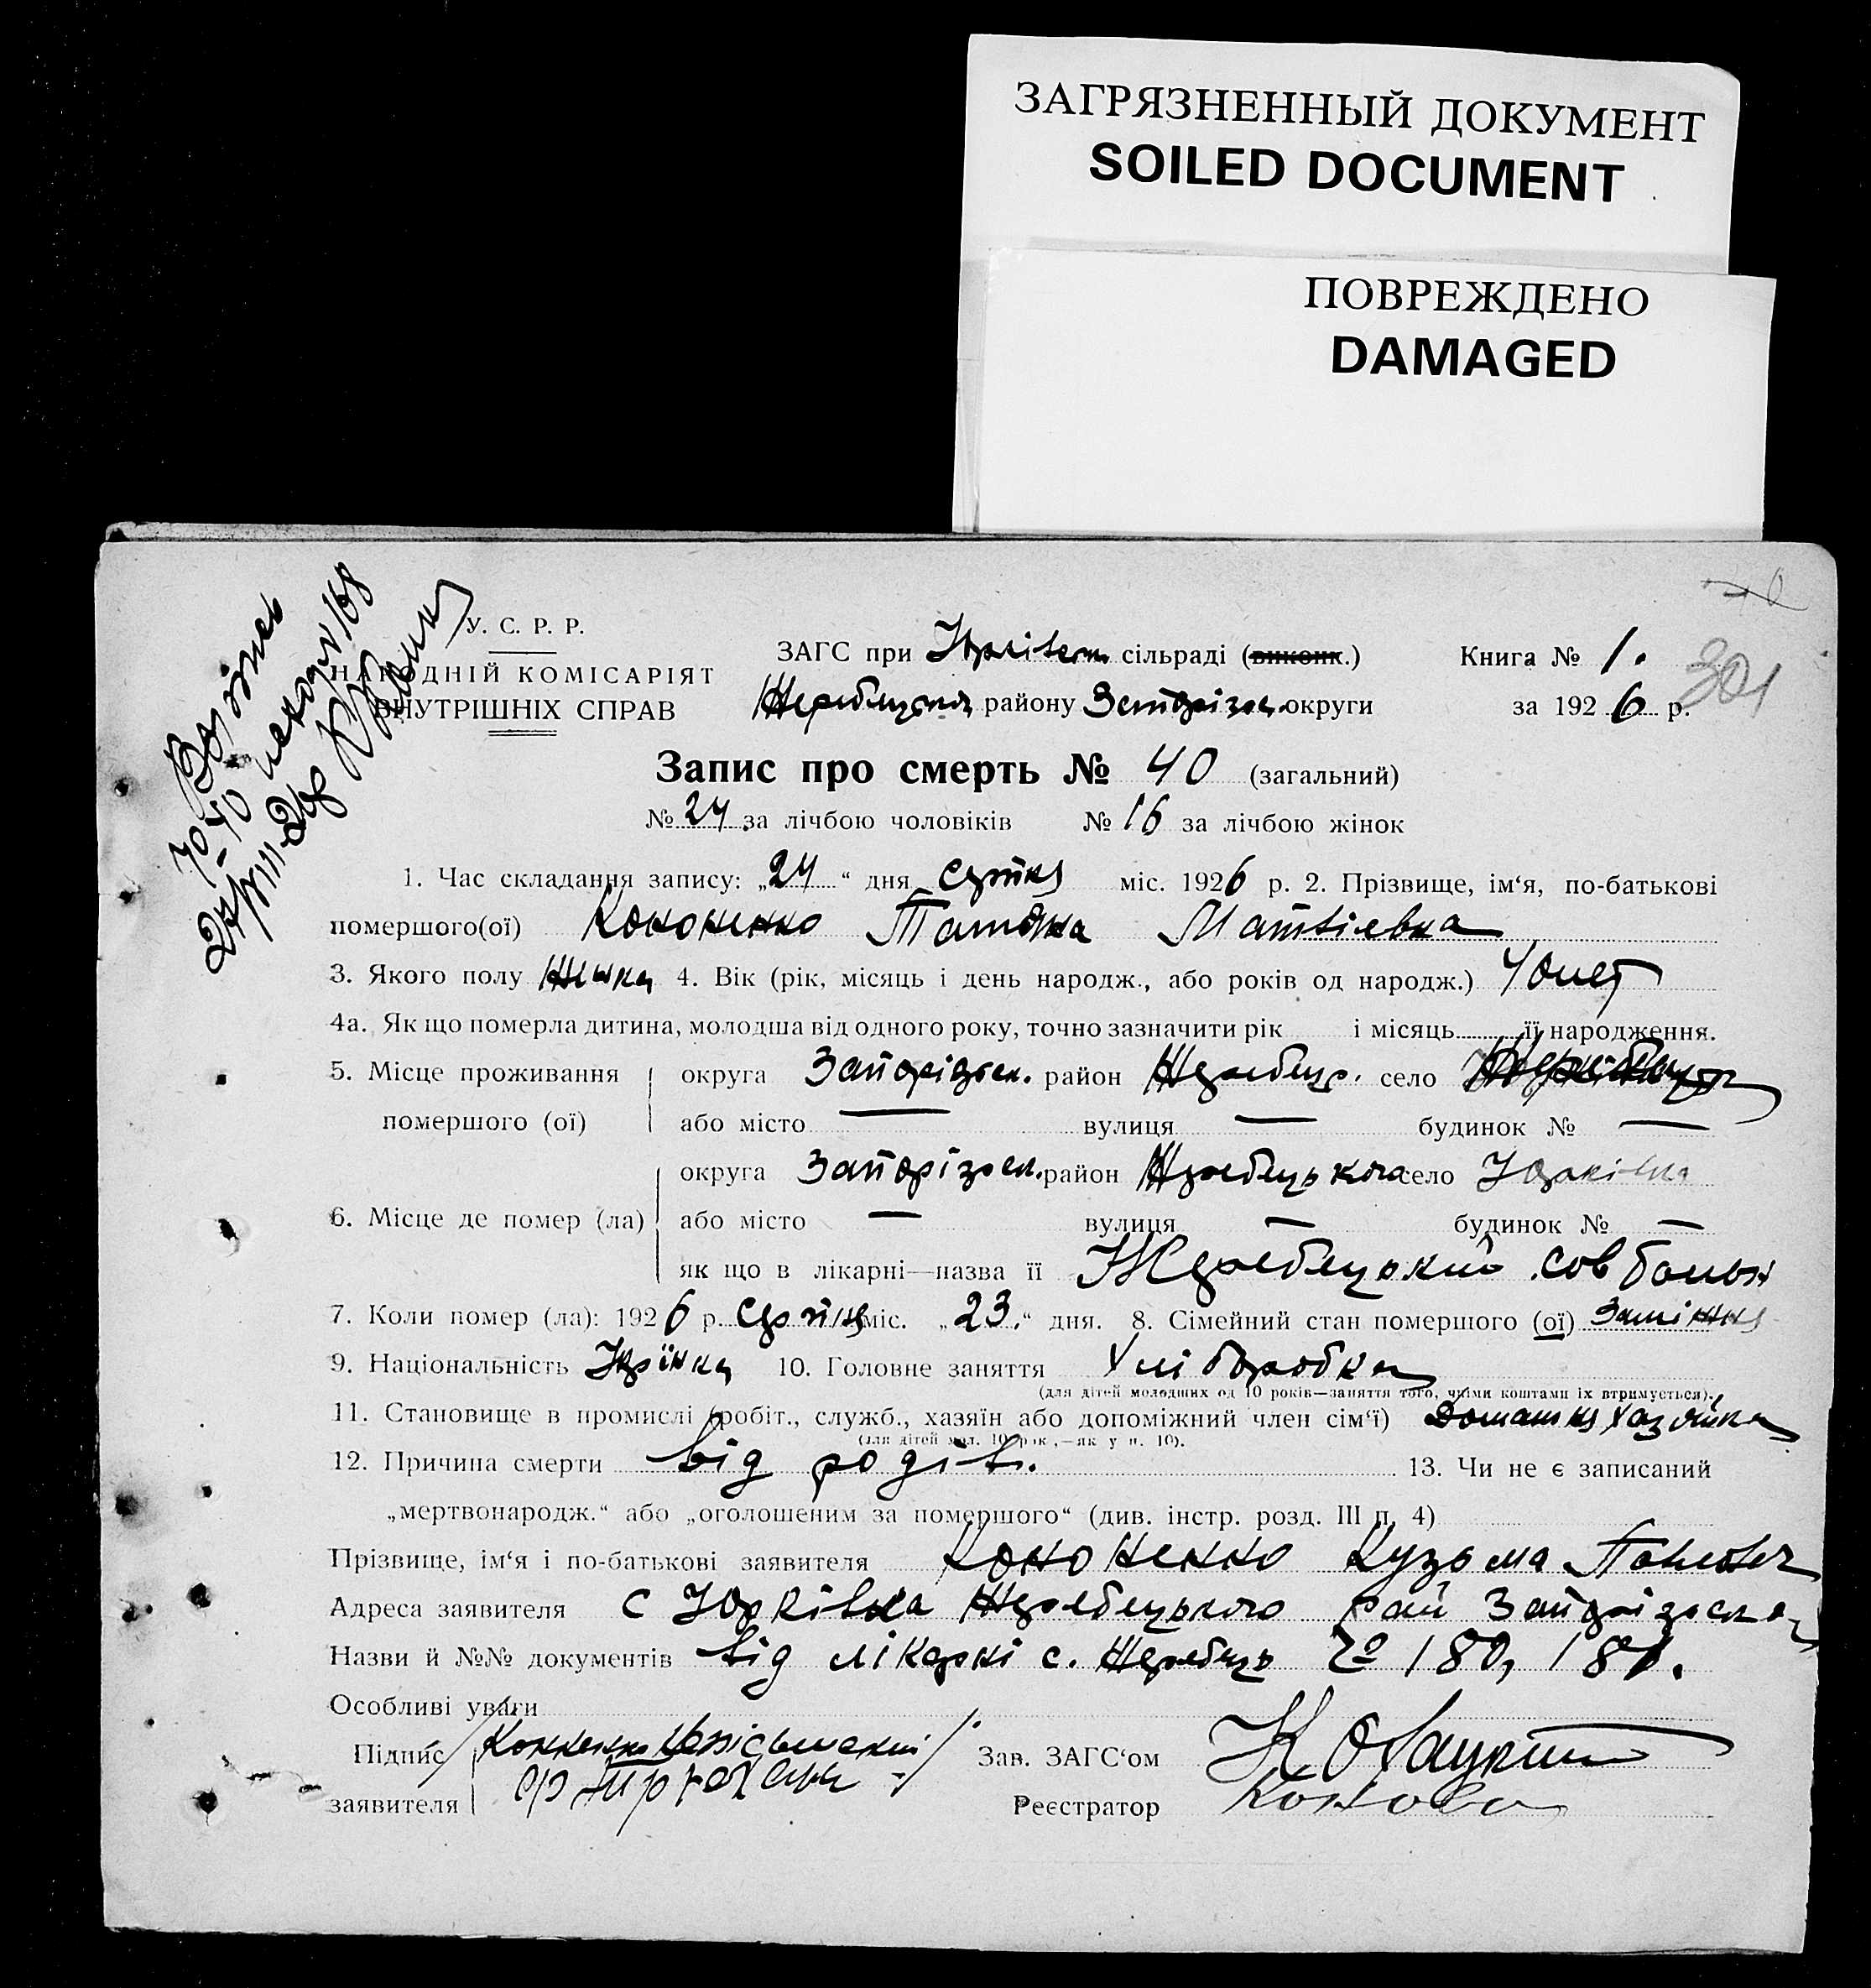 ЗАГРЯЗНЕННЫЙ ДОКУМЕНТ
SOILED DOCUMENT
ПОВРЕЖДЕНО
DAMAGED
301
У. С. Р. Р.
НАРОДНІЙ КОМІСАРІЯТ
ВНУТРІШНІХ СПРАВ
ЗАГС при сільраді (виконк.) Книга № 1.
району округи за 1926 р.
Запис про смерть № 40 (загальний)
№ 24 за лічбою чоловіків № 16 за лічбою жінок
1. Час складання запису: „24“ дня серпня міс. 1926 р. 2. Прізвище, ім‘я, по-батькові
помершого(ої) Кононенко Матвіевна
3. Якого полу жінка 4. Вік (рік, місяць і день народж., або років од народж.) 40 лет
4а. Як що померла дитина, молодша від одного року, точно зазначити рік і місяць її народження.
5. Місце проживання округа Запорізьк. район Жеребец. село
помершого (ої) або місто — вулиця — будинок № —
округа Запорізьк. район Жеребецького село Юрківка
6. Місце де помер (ла) або місто — вулиця — будинок № —
як що в лікарні—назва її Жеребецький сов больн
7. Коли помер (ла): 1926 р. серпня міс. „23.“ дня. 8. Сімейний стан помершого (ої) Замiжня
9. Національність 10. Головне заняття Хліборобка
(для дітей молодших од 10 років—заняття того, чиїми коштами їх втримується).
11. Становище в промислі (робіт., служб., хазяїн або допоміжний член сім‘ї) Домашня хазяйка
(для дітей мол. 10 рок.,—як у п. 10).
12. Причина смерти від родів. 13. Чи не є записаний
„мертвонародж.“ або „оголошеним за помершого“ (див. інстр. розд. III п. 4)
Прізвище, ім‘я і по-батькові заявителя Кононенко Кузьма Павлович
Адреса заявителя с Юрківка Жеребецького рай Запорізьк
Назви й №№ документів від лікарні с. Жеребець № 180, 181.
Особливі уваги
Підпис Зав. ЗАГС‘ом
заявителя Реєстратор